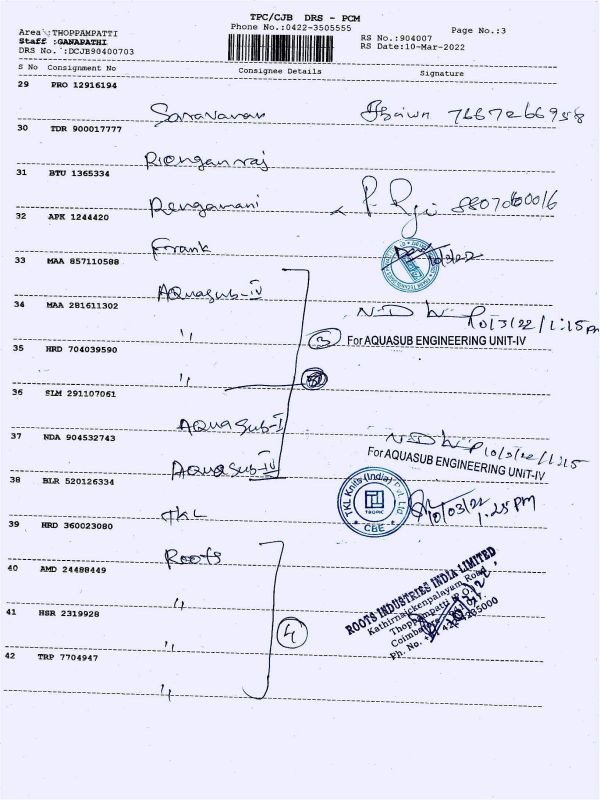 TPC/CJB DRS - PCM
Phone No.:0422-3505555
Page No.:3
Area :THOPPAMPATTI
Staff :GANAPATHI
DRS No. :DCJB90400703
RS No.:904007
RS Date:10-Mar-2022
S No Consignment No Consignee Details Signature
29 PRO 12916194
Saravanan 7667266958
30 TDR 900017777
31 BTU 1365334
Rengamani 8807000016
32 APK 1244420
Frank 10/3/22
33 MAA 857110588
Aquasub-IV
34 MAA 281611302
10/3/22 / 1:15 PM
"
3 For AQUASUB ENGINEERING UNIT-IV
35 HRD 704039590
"
36 SLM 291107061
Aquasub-I
37 NDA 904532743
10/3/22 / 1:15
For AQUASUB ENGINEERING UNIT-IV
Aquasub-IV
38 BLR 520126334
TKL Knits (India) Pvt. Ltd
TROPIC
CBE
10/03/22
1:25 PM
TKL
39 HRD 360023080
Roots
40 AMD 24488449
ROOTS INDUSTRIES INDIA LIMITED
Kathirnaickenpalayam Road
Thoppampatti P.O.
Coimbatore
Ph. No.
"
41 HSR 2319928
4
"
42 TRP 7704947
"